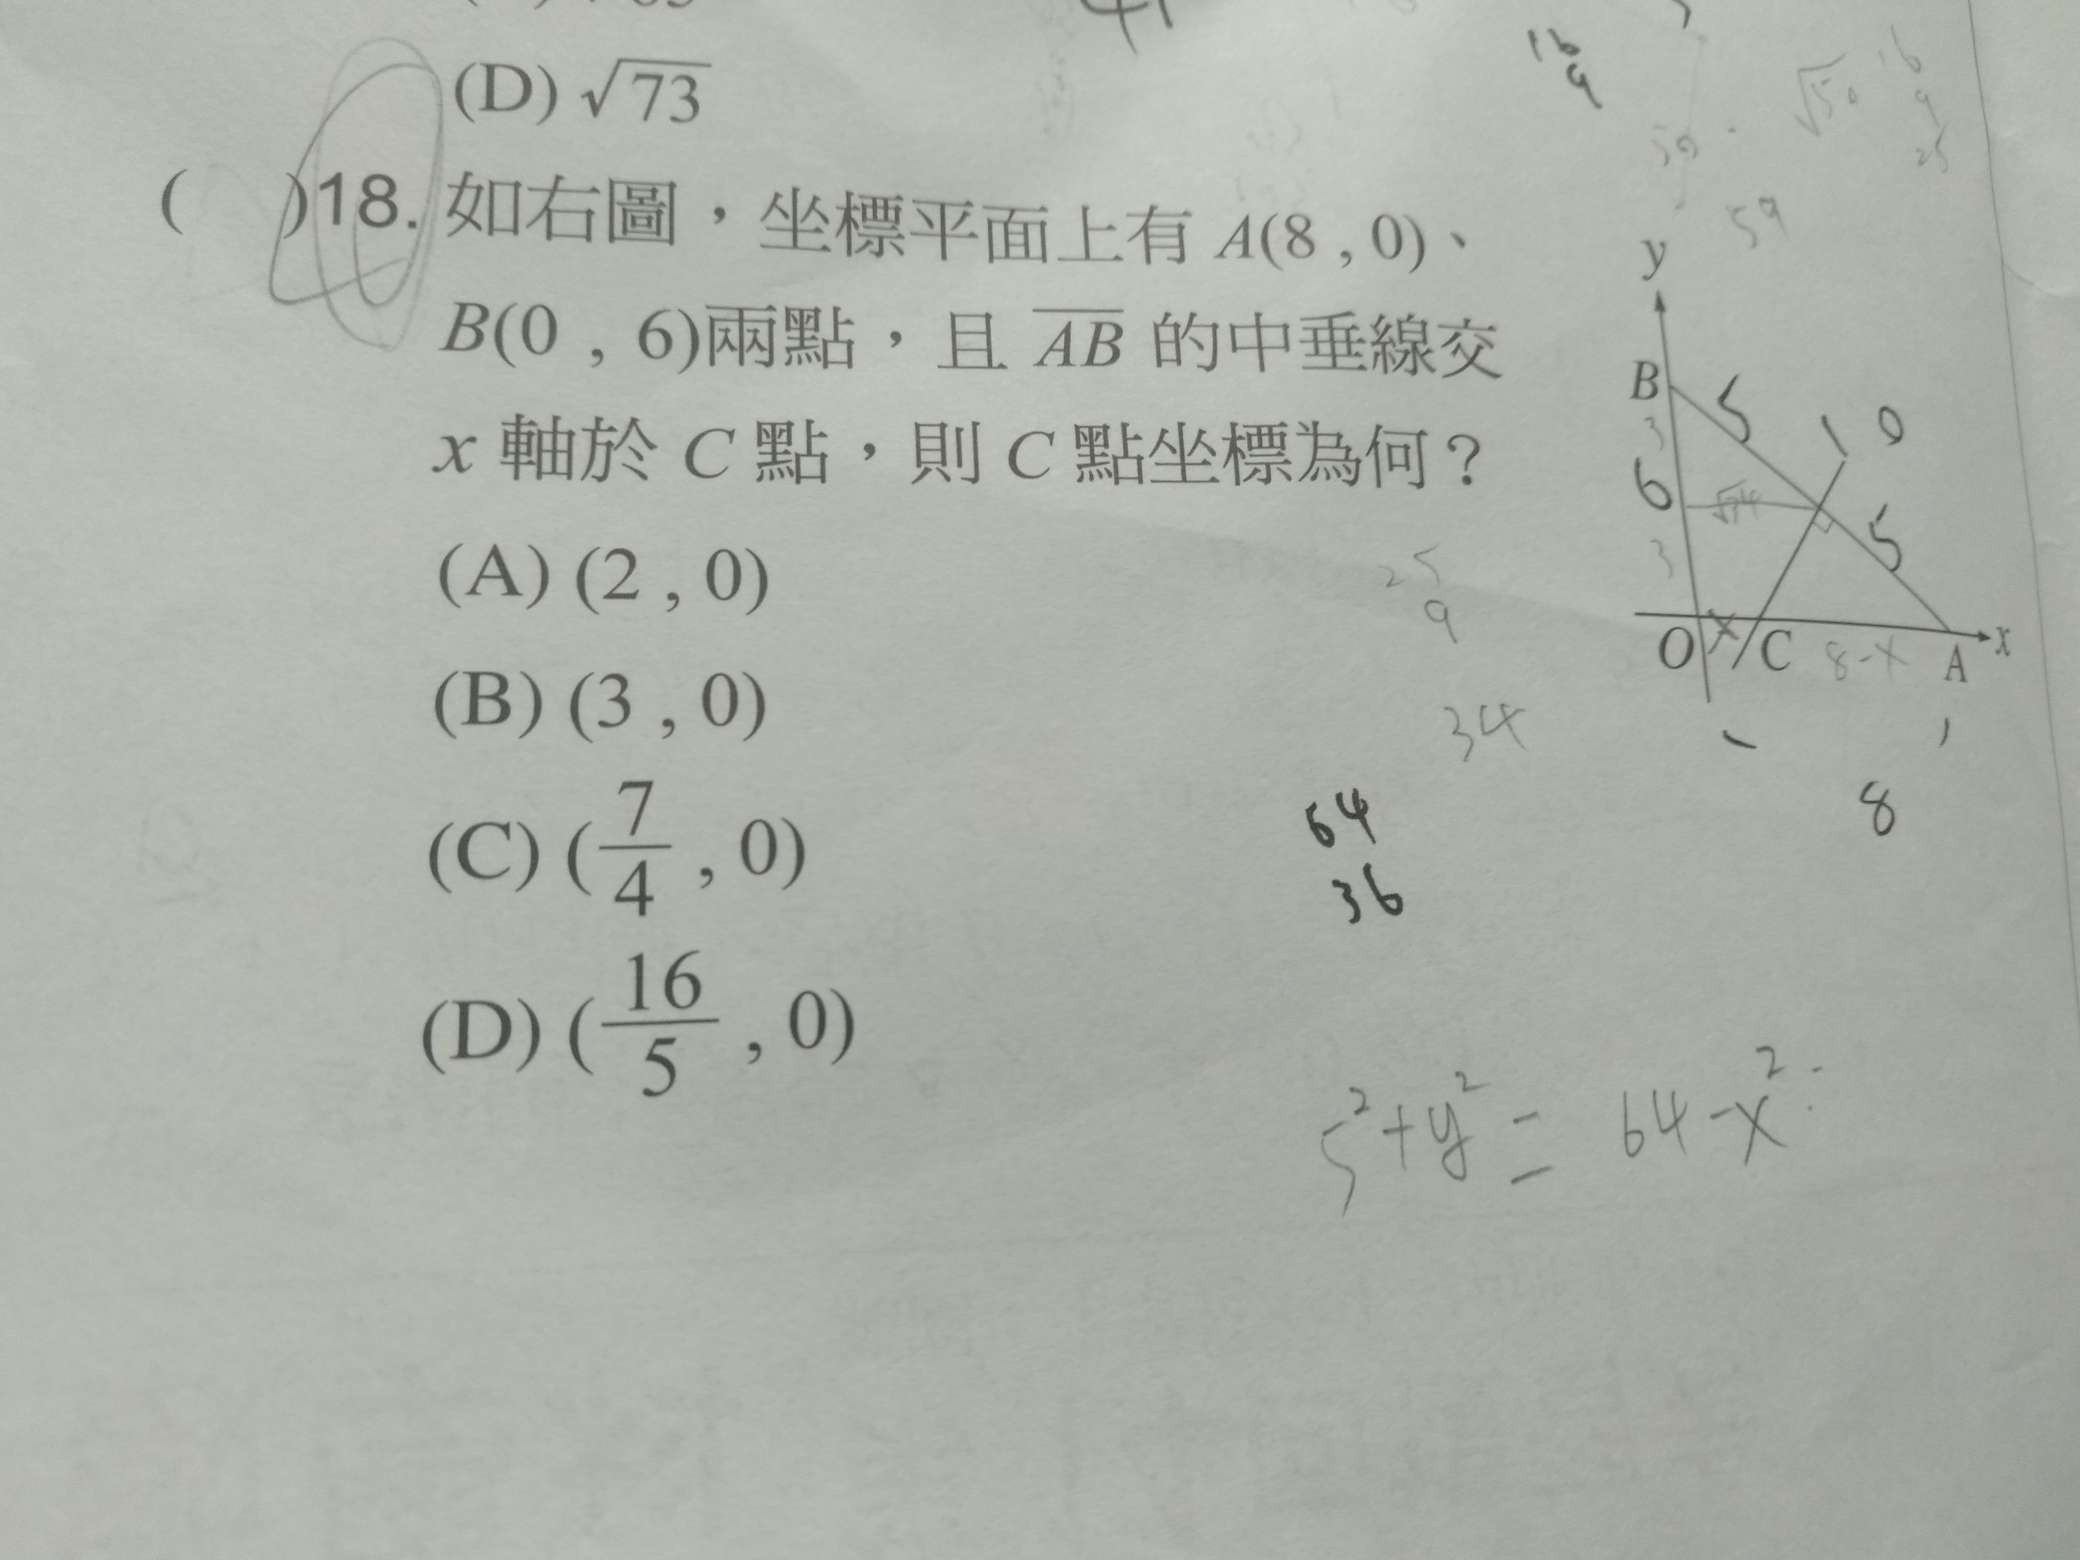 (D) √73
16
9
√50
16
9
25
50
59
(　)18. 如右圖，坐標平面上有 A(8 , 0)、
B(0 , 6)兩點，且 AB 的中垂線交
x 軸於 C 點，則 C 點坐標為何？
(A) (2 , 0)
(B) (3 , 0)
(C) (7/4 , 0)
(D) (16/5 , 0)
y
B 5 10
3
6 √34 5
3
O x C 8-x A x
8
25
9
34
64
36
5²+y² = 64-x²